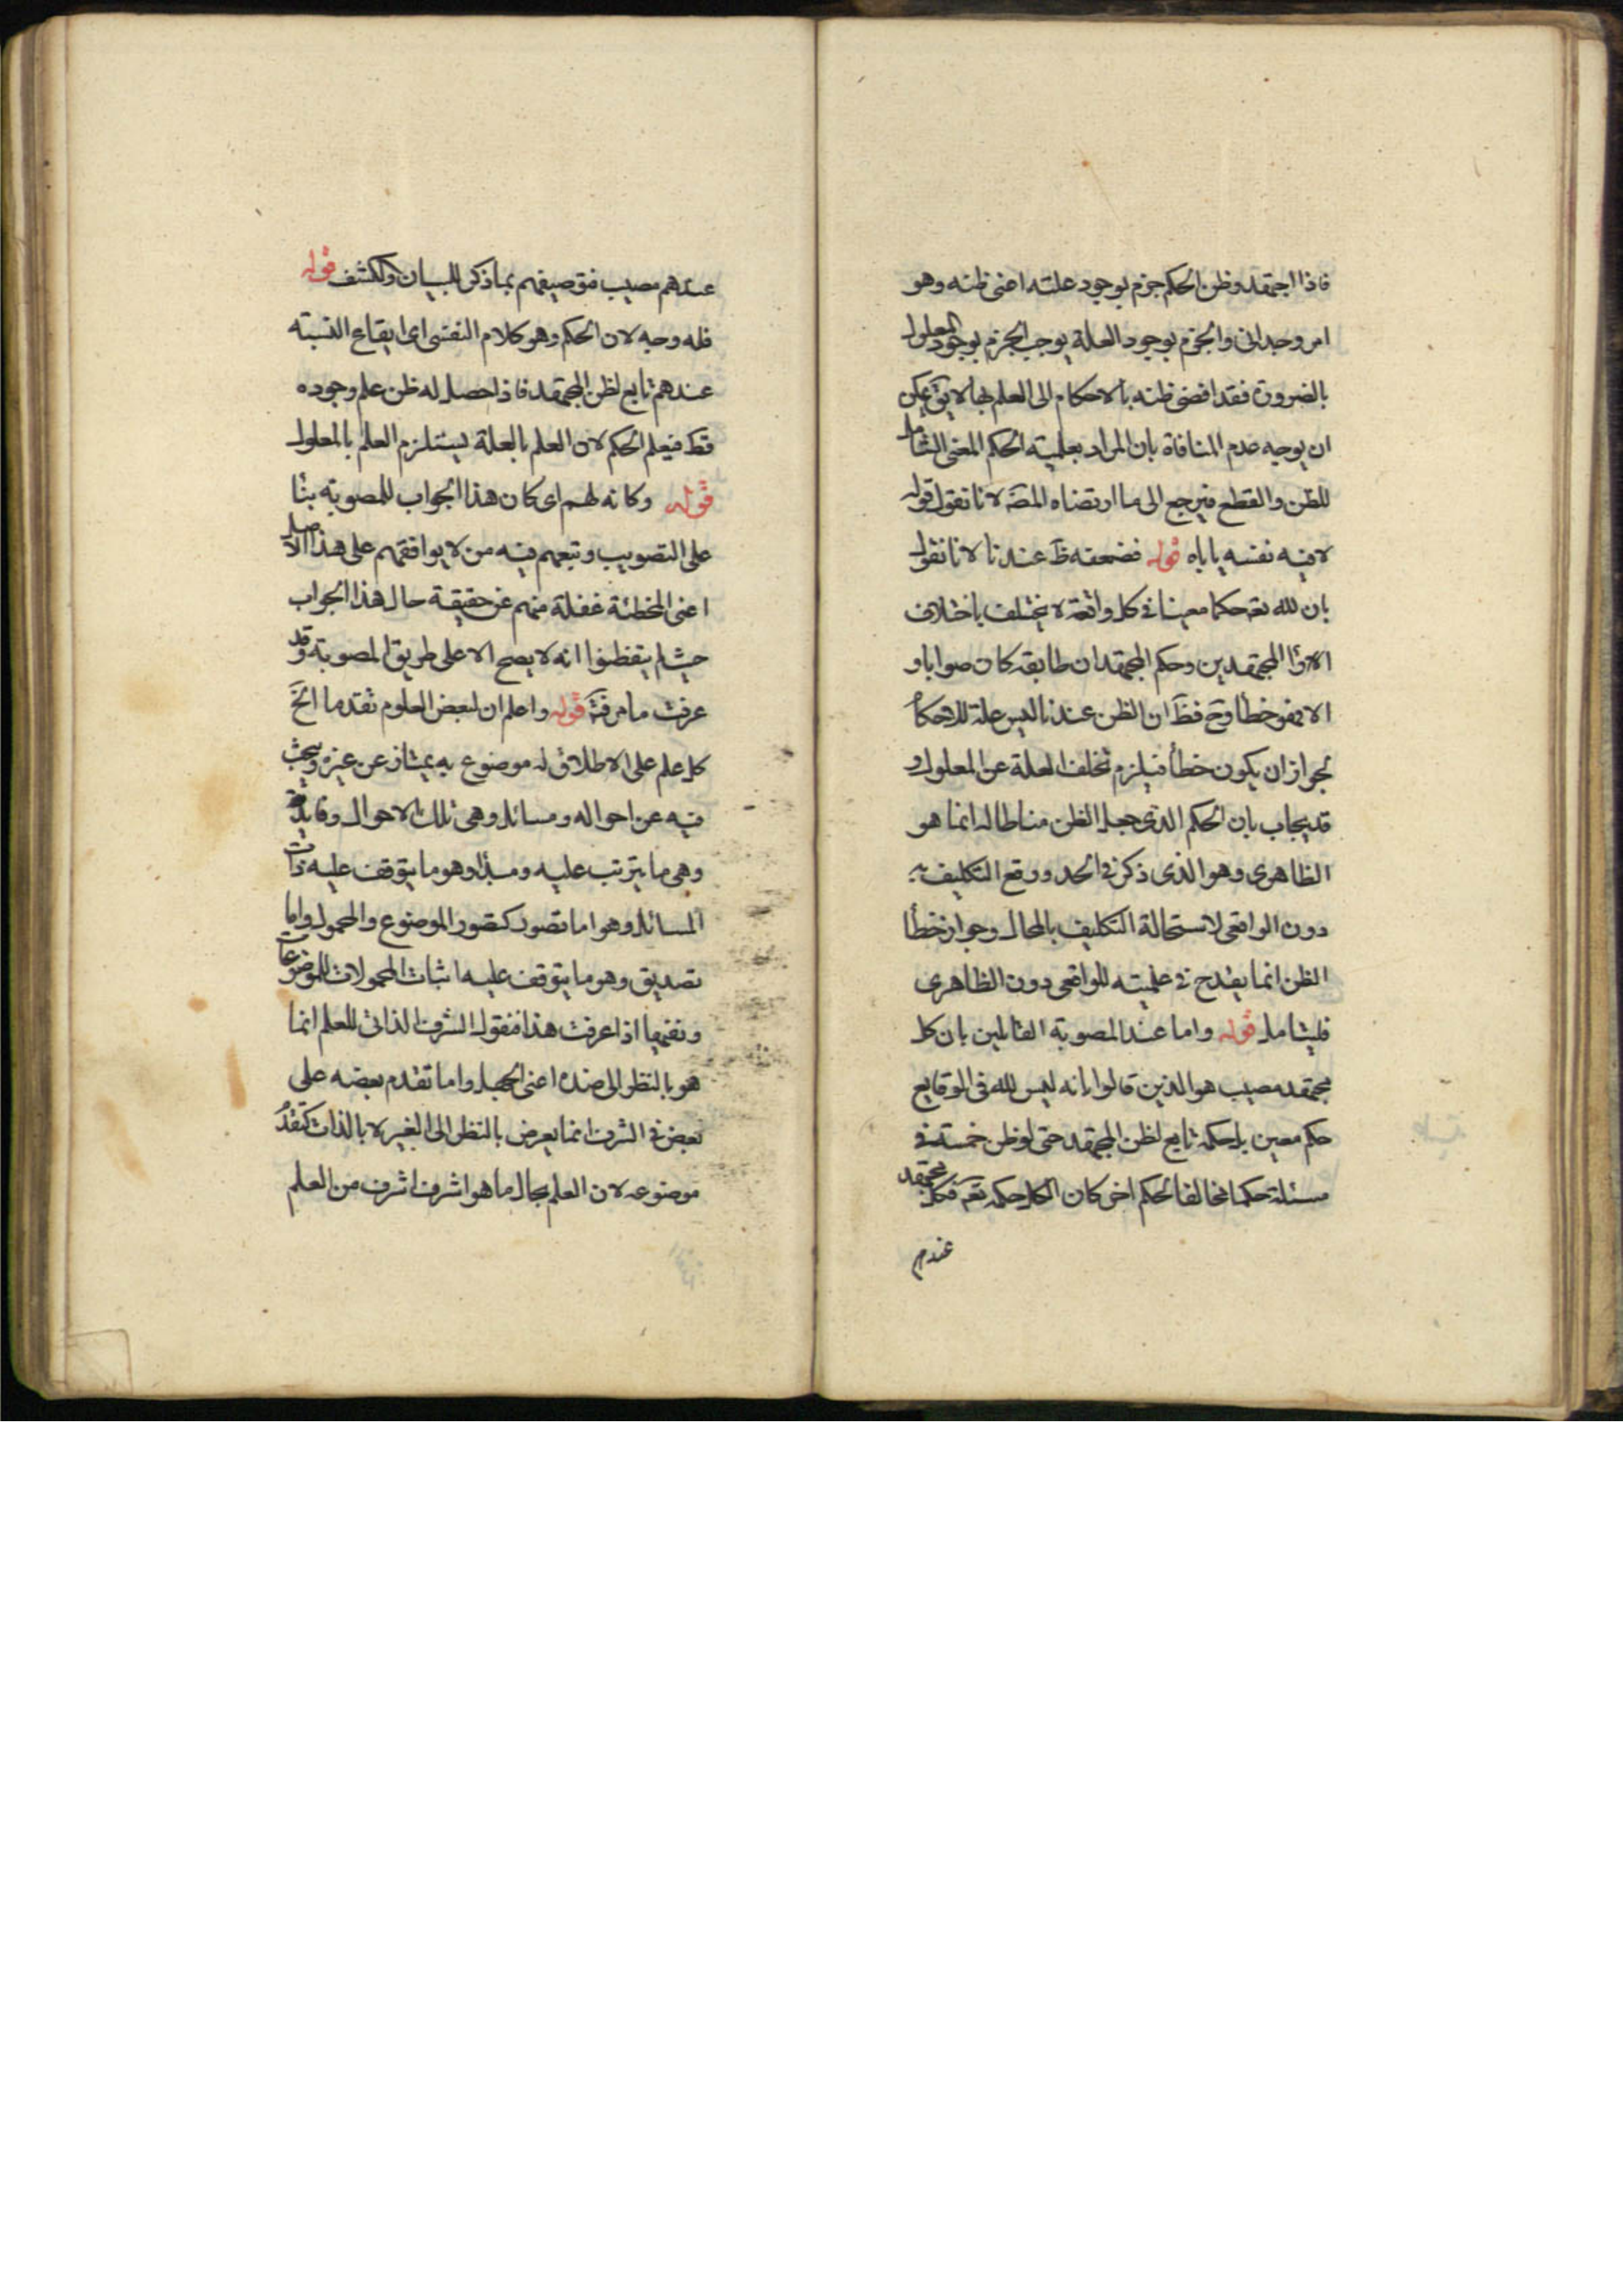 فاذا اجتهد وظن الحكم جزم بوجود علته اعنى ظنه وهو
امر وجدانى والجزم بوجود العلة يوجب الجزم بوجود المعلول
بالضرورة فقد افضى ظنه بالاحكام الى العلم بها لا يق يمكن
ان يوجه عدم المنافاة بان المراد بعلمية الحكم المعنى الشامل
للظن والقطع فيرجع الى ما ارتضاه المصَ لانا نقول قوله
لا فيه نفسه ياباه قوله فضعفه ظَ عندنا لانا نقول
بان لله تعَ حكما معينا فى كل واقعة لا يختلف باختلاف
الآراء المجتهدين وحكم المجتهد ان طابقه كان صوابا و
الا فهو خطأ وح فظَ ان الظن عندنا ليس علة للاحكام
لجواز ان يكون خطأ فيلزم تخلف العلة عن المعلول و
قد يجاب بان الحكم الذى جعل الظن مناطا له انما هو
الظاهرى وهو الذى ذكر فى الحد ووقع التكليف به
دون الواقعى لاستحالة التكليف بالمحال وجواز خطأ
الظن انما يقدح فى علميته للواقعى دون الظاهرى
فليتامل قوله واما عند المصوبة القائلين بان كل
مجتهد مصيب هو الذين قالوا بانه ليس لله فى الوقايع
حكم معين بل حكمه تابع لظن المجتهد حتى لو ظن خمسة فى
مسئلة حكما مخالفا لحكم اخر كان الكل حكمه تعَ فكل مجتهد
عندهم
عندهم مصيب فتوصيفهم بما ذكر للبيان والكشف قوله
فله وجه لان الحكم وهو كلام النفسى اى ايقاع النسبة
عندهم تابع لظن المجتهد فاذا حصل له ظن علم وجوده
قط فيعلم الحكم لان العلم بالعلة يستلزم العلم بالمعلول
قوله وكانه لهم اى كان هذا الجواب للمصوبة بنا
على التصويب وتبعهم فيه من لا يوافقهم على هذا الاصل
اعنى المخطئة غفلة منهم عن حقيقة حال هذا الجواب
حيث لم يتفطنوا انه لا يصح الا على طريق المصوبة وقد
عرفت ما مر فتَ قوله واعلم ان لبعض العلوم تقدما الخَ
كل علم على الاطلاق له موضوع به يمتاز عن غيره ويبحث
فيه عن احواله ومسائل وهى تلك الاحوال وفايدة
وهى ما يترتب عليه ومبدأ وهو ما يتوقف عليه ذات
المسائل وهو اما تصور كتصور الموضوع والمحمول واما
تصديق وهو ما يتوقف عليه اثبات المحمولات للموضوعات
ونفيها اذا عرفت هذا فنقول الشرف الذاتى للعلم انما
هو بالنظر الى ضده اعنى الجهل واما تقدم بعضه على
بعض فى الشرف انما يعرض بالنظر الى الغير لا بالذات كتقدم
موضوعه لان العلم بحال ما هو اشرف اشرف من العلم